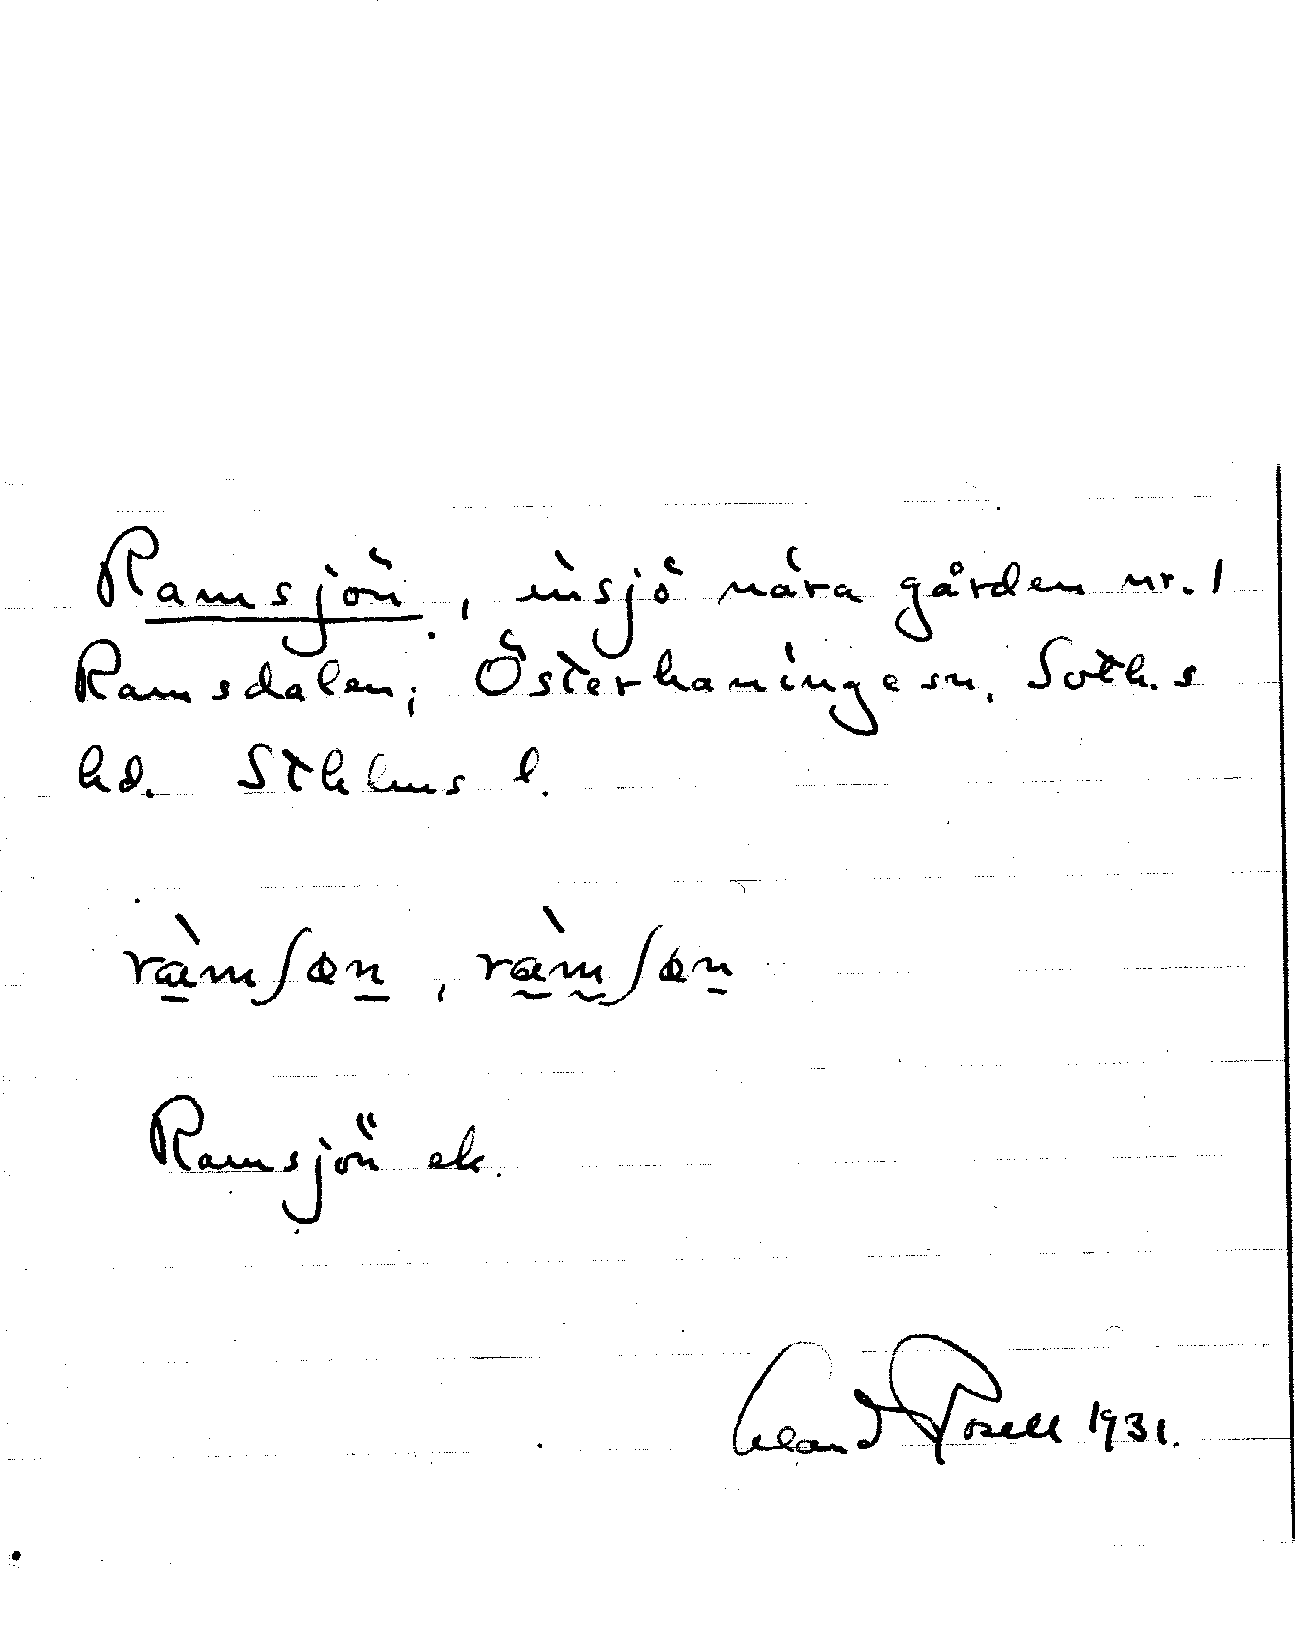 Ramsjön, insjö nära gården nr. 1
Ramsdalen, Österhaninge sn. Soth.s
hd. Sthlms l.
ràmʃøn, ràmʃøn
Ramsjön ek.
Rosell 1931.